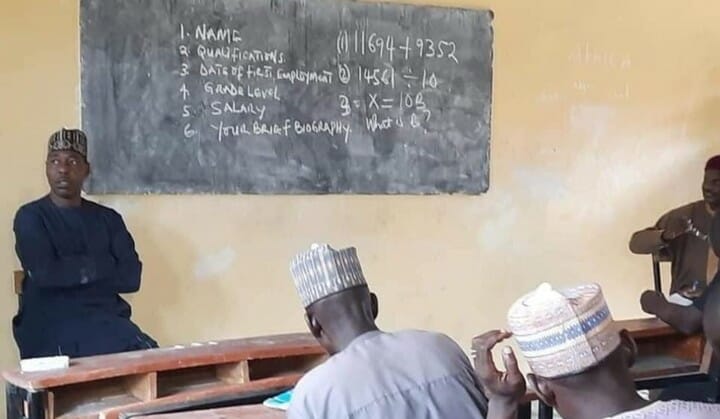 1. NAME
2. QUALIFICATIONS
3. DATE OF FIRST EMPLOYMENT
4 GRADE LEVEL
5 SALARY
6. YOUR BRIEF BIOGRAPHY.
(1) 11694 + 9352
(2) 14561 ÷ 10
3 = X = 10B
What is B?
AFRICA